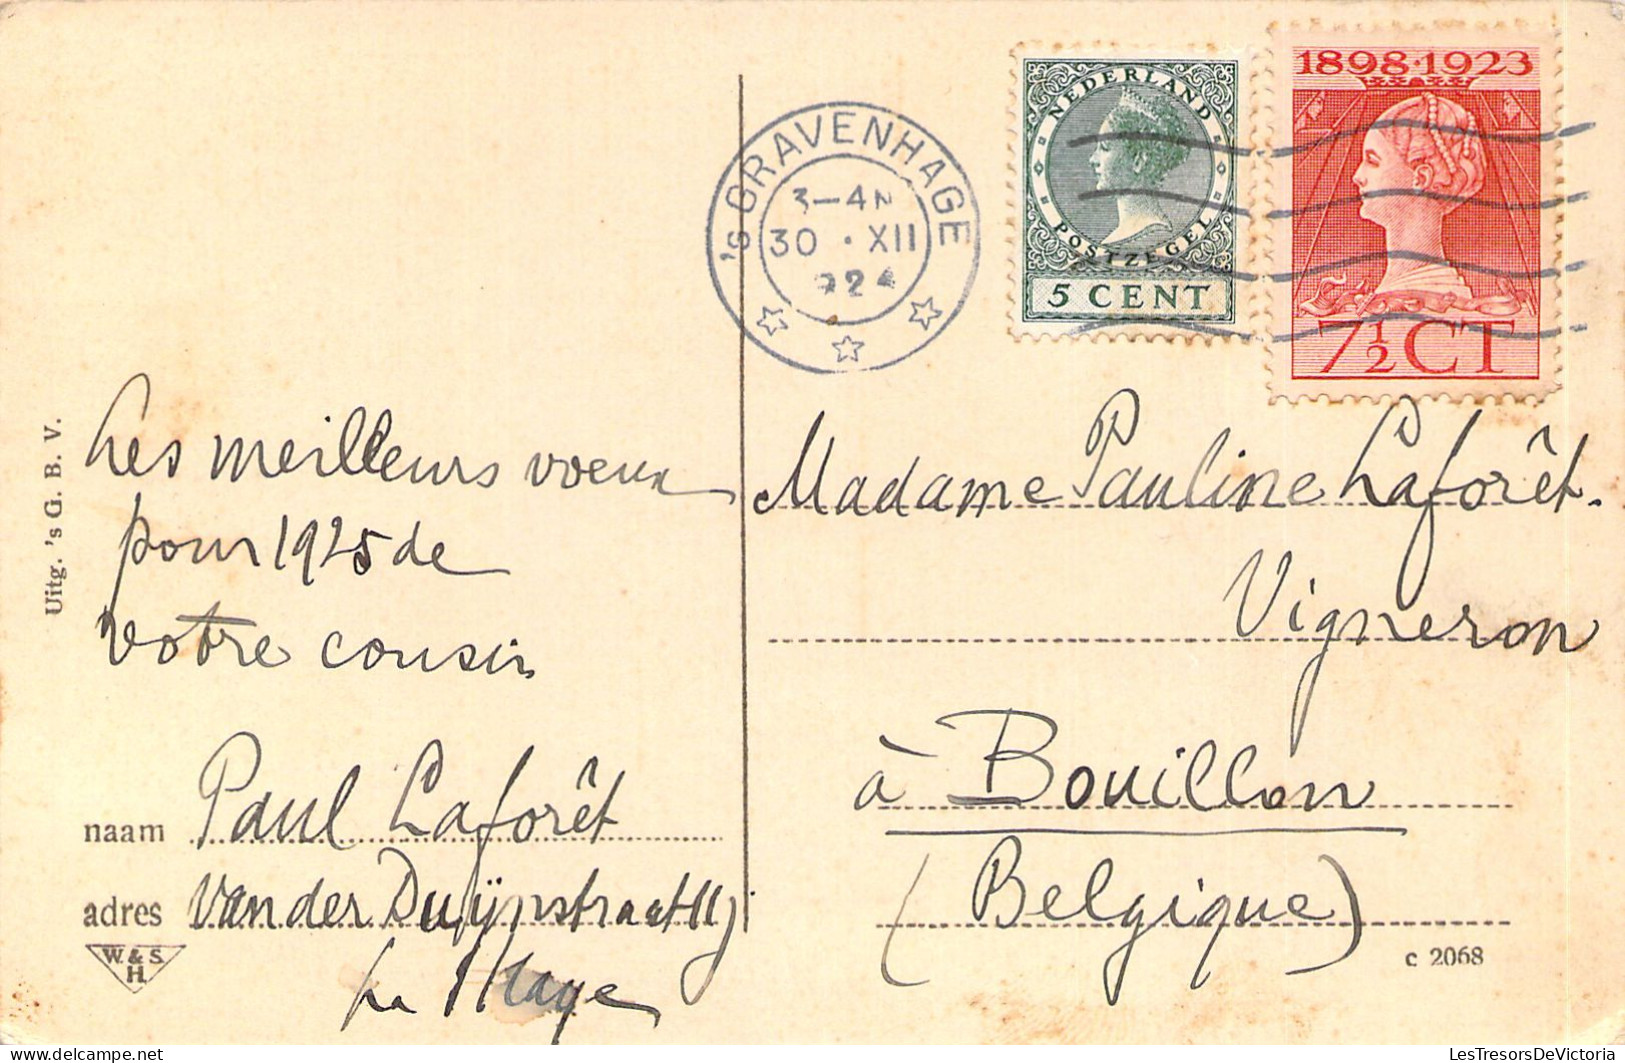 1898·1923
NEDERLAND
POSTZEGEL
5 CENT
7½ CT
's GRAVENHAGE
3-4 N
30 · XII
924
Les meilleurs voeux
pour 1925 de
votre cousin
naam Paul Laforêt
adres Van der Duÿnstraat
La Haye
Uitg. 's G. B. V.
W. & S.
H.
Madame Pauline Laforêt.
Vigneron
à Bouillon
(Belgique)
c 2068
© LesTresorsDeVictoria
delcampe.net
LesTresorsDeVictoria